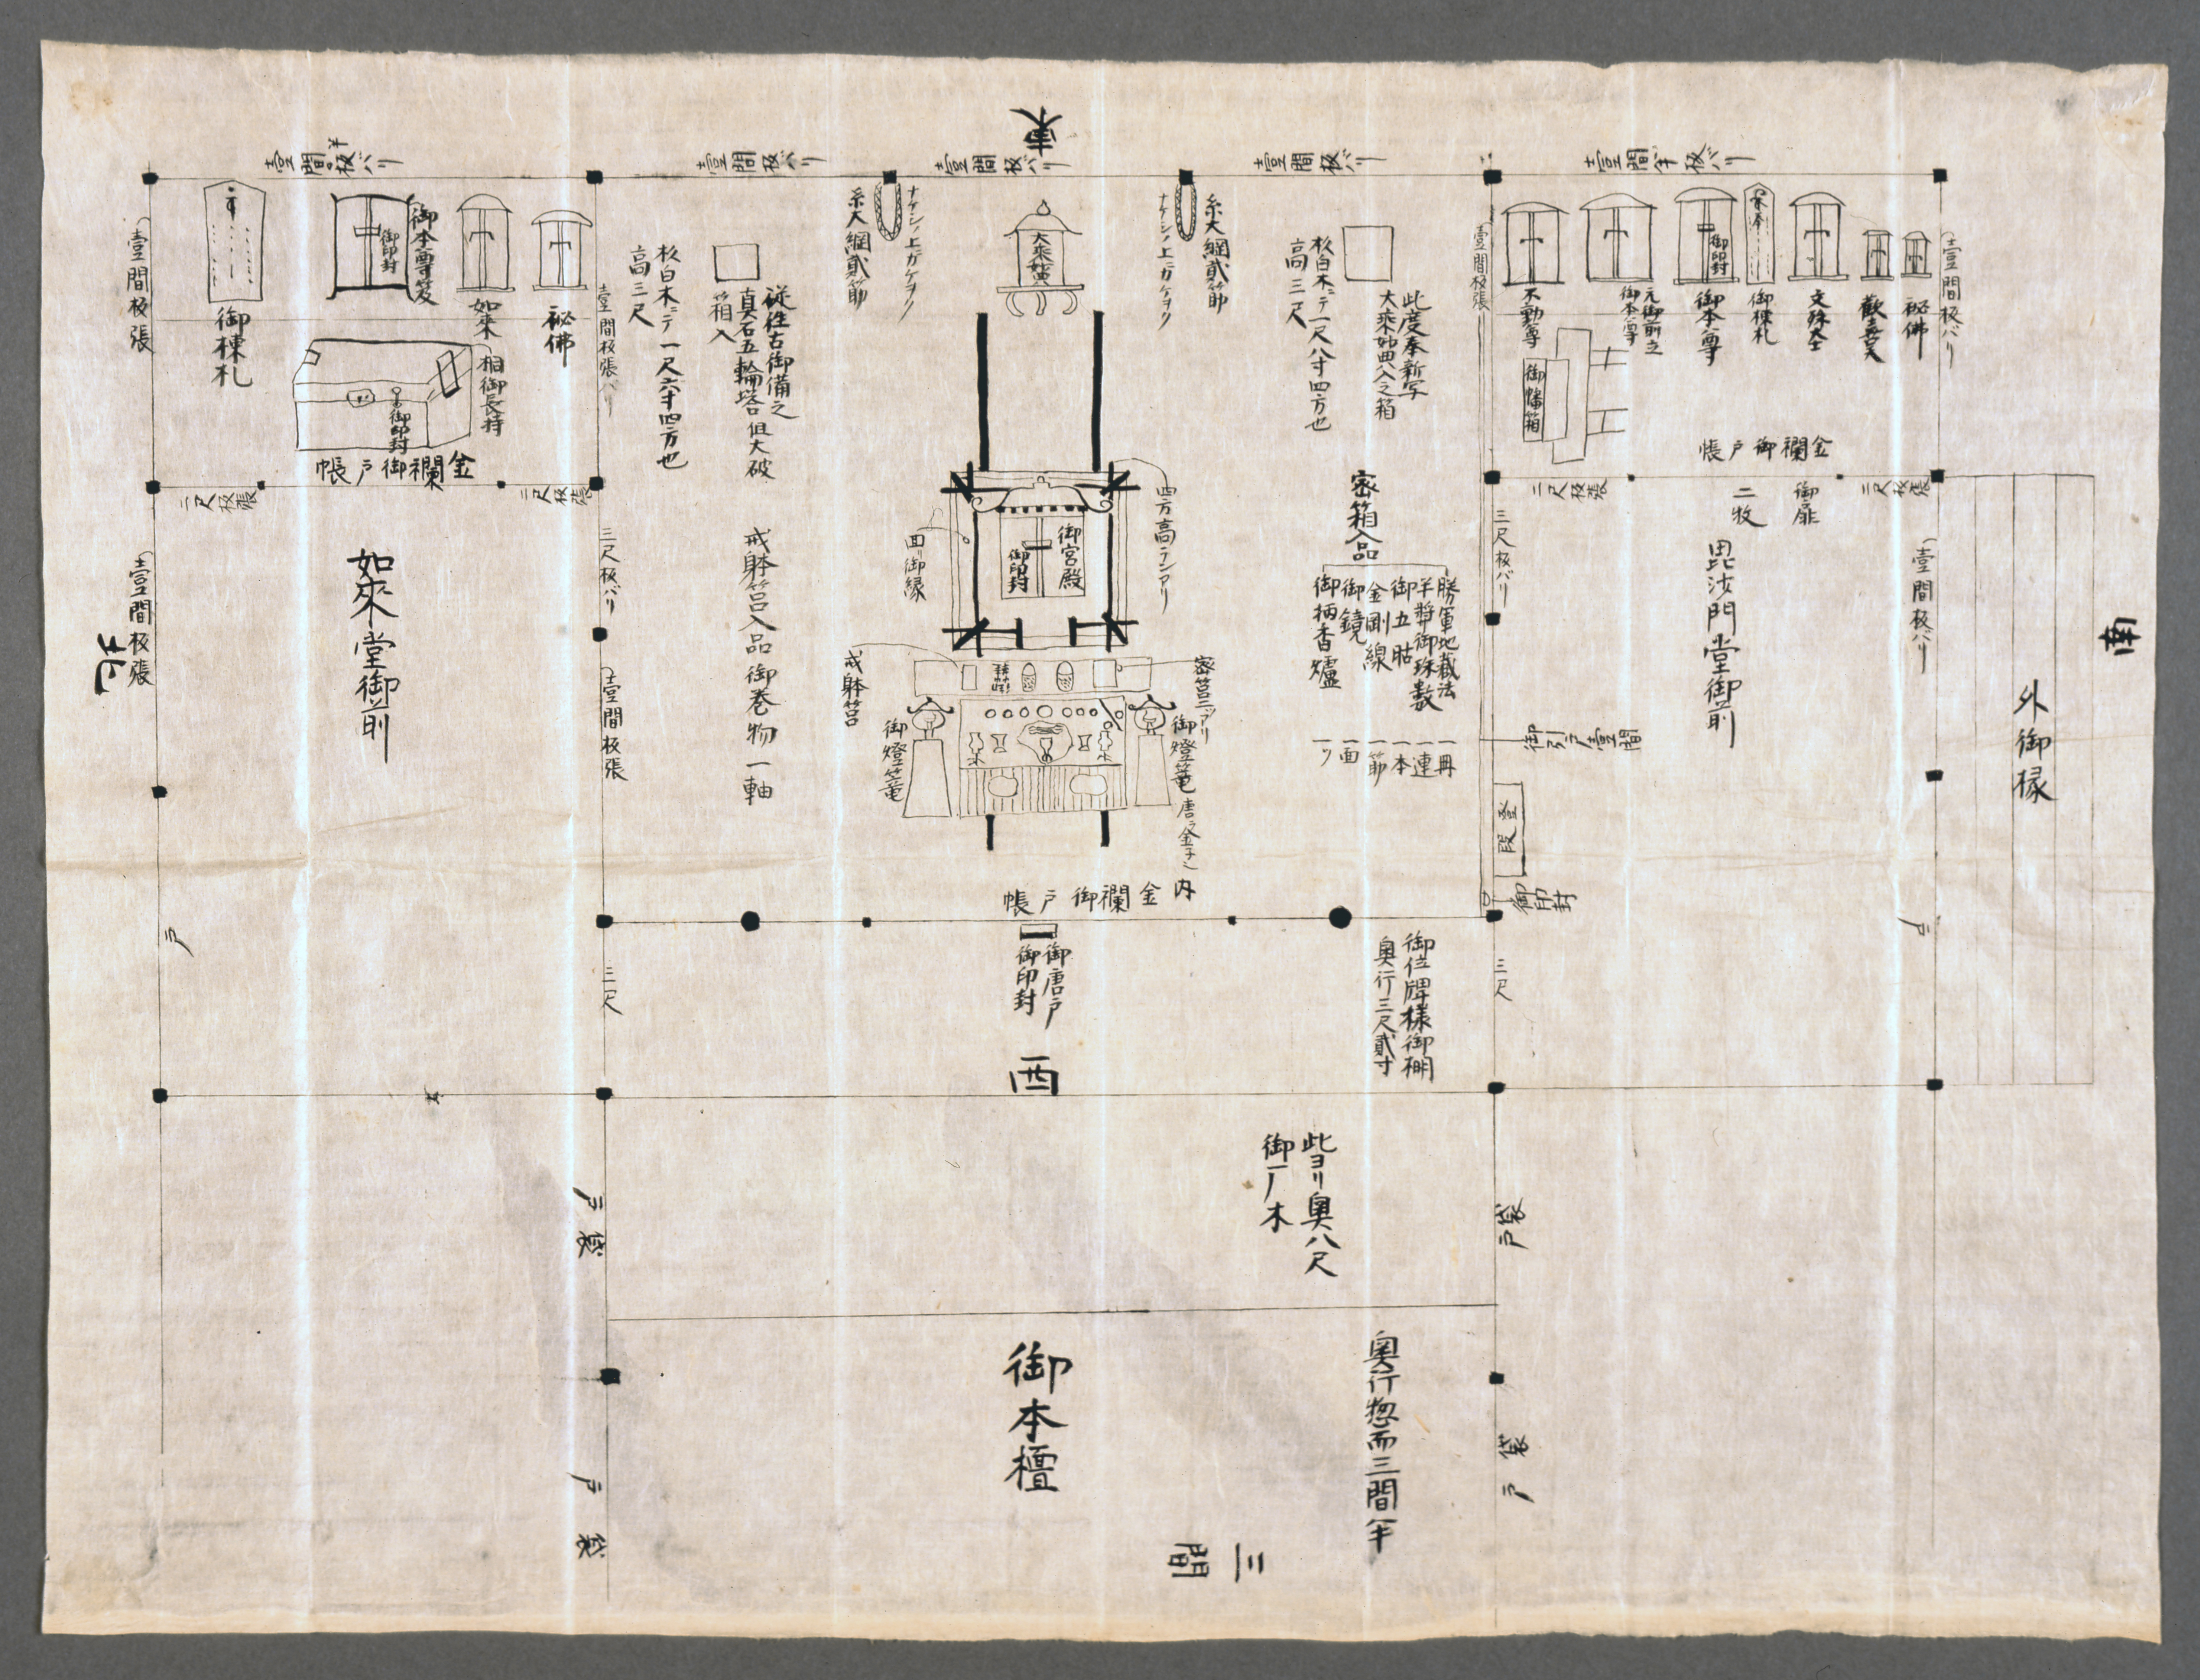 東
壹間半板バリ
壹間板バリ
壹間板バリ
壹間板バリ
壹間半板バリ
壹間板バリ
秘佛
歡喜天
文殊大士
御棟札
御本尊
御印封
元御前立
御本尊
不動尊
御幡箱
金襴御戸帳
壹間板張
二尺板張
御扉
二枚
二尺板張
壹間板バリ
毘沙門堂御前
三尺板バリ
御引戸壹間
登段
御印封
戸
南
外御椽
三尺
此度奉新写
大乗妙典入之箱
杉白木ニテ一尺八寸四方也
高三尺
密箱入品
勝軍地蔵法
一冊
半裝御珠数
一連
御五鈷
一本
金剛線
一節
御鏡
一面
御柄香爐
一ツ
糸大綱貳節
ナゲシノ上ニカケヲク
大乗妙典
ナゲシノ上ニカケヲク
糸大綱貳節
四方高ランアリ
御宮殿
御印封
回リ御縁
密筥二ツアリ
戒躰筥
御燈篭
御燈篭
内
金襴御戸帳
御唐戸
御印封
従往古御備之
真石五輪塔但大破
箱入
杉白木ニテ一尺六寸四方也
高三尺
戒躰筥入品
御巻物一軸
壹間板張
秘佛
如来
御本尊笈
御印封
御棟札
桐御長持
御印封
金襴御戸帳
二尺板張
二尺板張
三尺板バリ
壹間板張
壹間板張
壹間板張
北
如来堂御前
戸
三尺
御位牌様御棚
奥行三尺貳寸
西
此ヨリ奥八尺
戸袋
戸袋
戸袋
戸袋
御本檀
奥行惣而三間半
三間